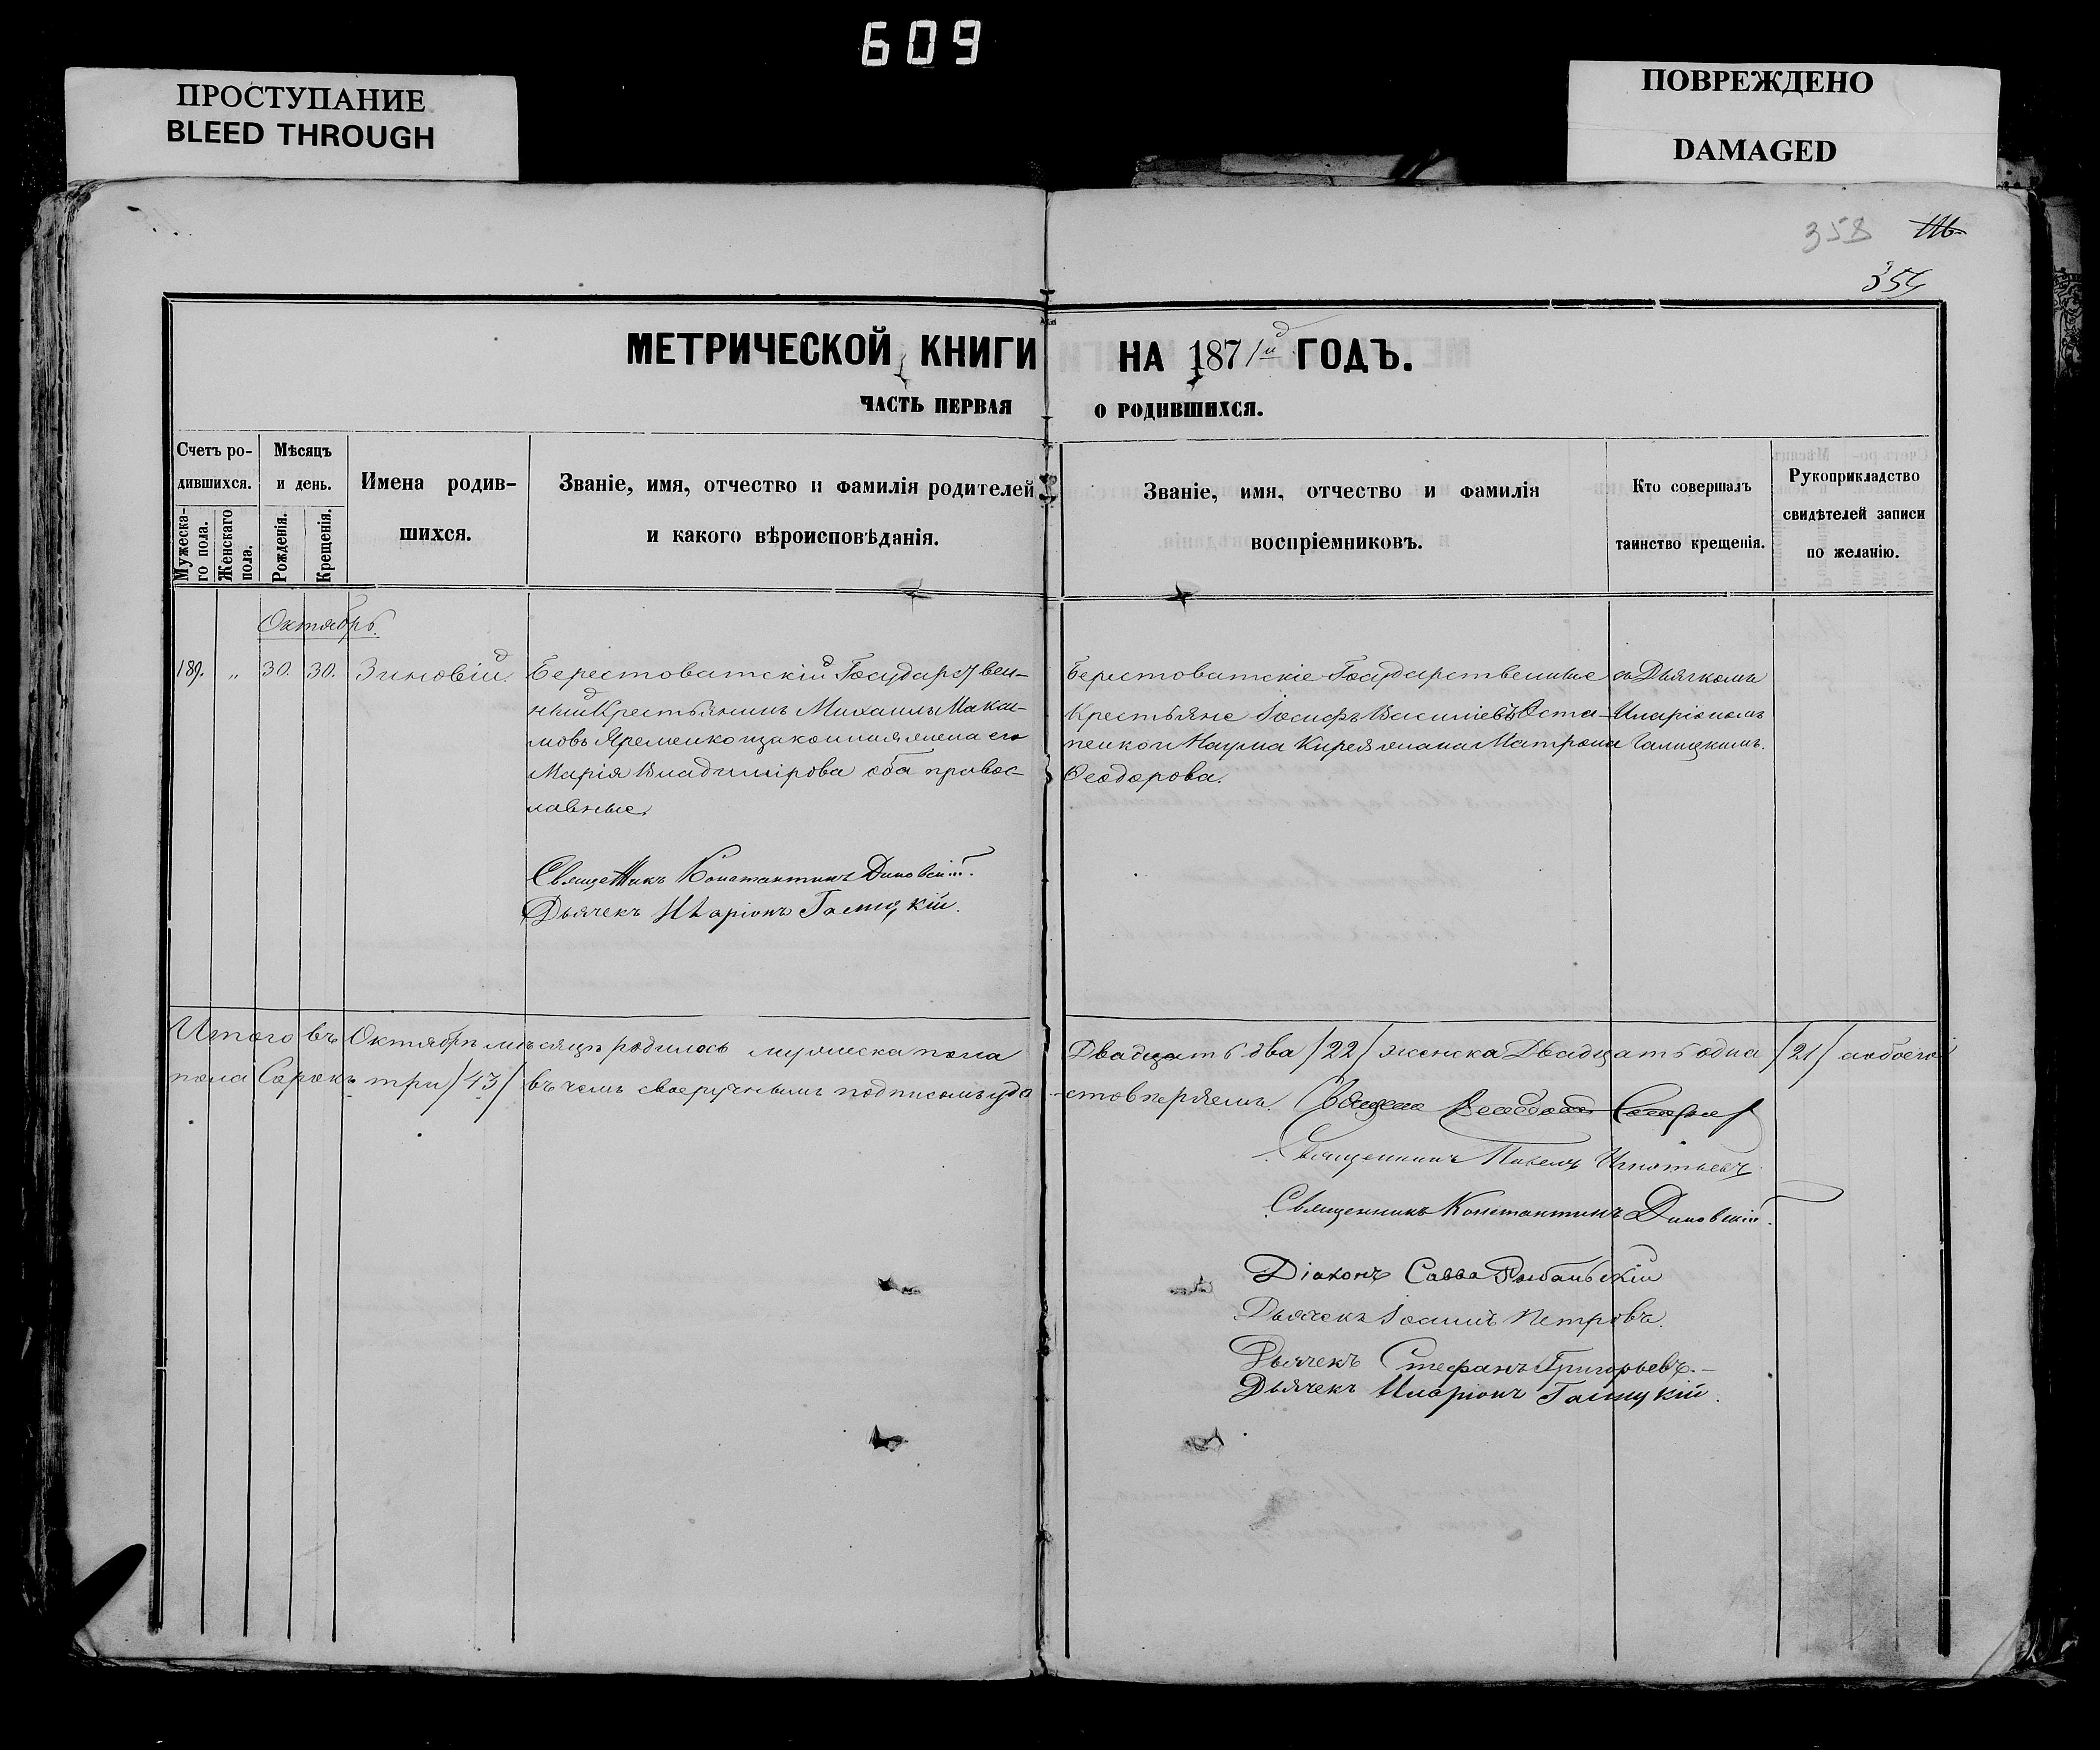 609
ПРОСТУПАНИЕ
BLEED THROUGH
ПОВРЕЖДЕНО
DAMAGED
358
354
МЕТРИЧЕСКОЙ КНИГИ НА 1871й ГОДЪ.
ЧАСТЬ ПЕРВАЯ О РОДИВШИХСЯ.
Счетъ ро-
дившихся.
Мужеска-
го пола.
Женскаго
пола.
Мѣсяцъ
и день.
Рожденія.
Крещенія.
Имена родив-
шихся.
Званіе, имя, отчество и фамилія родителей
и какого вѣроисповѣданія.
Званіе, имя, отчество и фамилія
воспріемниковъ.
Кто совершалъ
таинство крещенія.
Рукоприкладство
свидѣтелей записи
по желанію.
Октябрь.
189. „ 30. 30. Зиновій.
Берестоватскій Государствен-
ный Крестьянинъ Михаилъ Макси-
мовъ Яременко изаконная жена его
Марія Владимірова оба правос-
лавные.
Священникъ Константинъ Диковскій.
Дьячекъ Иларіонъ Галицкій.
Берестоватскіе Государственные
Крестьяне Іосифъ Васильевъ Оста-
пенко и Наума Кирея жена Матрона
Ѳеодорова.
съ Дьячкомъ
Иларіономъ
Галицкимъ.
Итого въ Октябрѣ мѣсяцѣ родилось мужеска пола Двадцать два /22/ женска Двадцать одна /21/ аобоего
пола Сорокъ три /43/ въ чемъ своеручнымъ подписомъ удостовѣряемъ.
Священникъ Павелъ Игнатьевъ
Священникъ Константинъ Диковскій.
Діаконъ Савва Рыбальскій
Дьячекъ Іоаннъ Петровъ.
Дьячекъ Стефанъ Григорьевъ.
Дьячекъ Иларіонъ Галицкій.